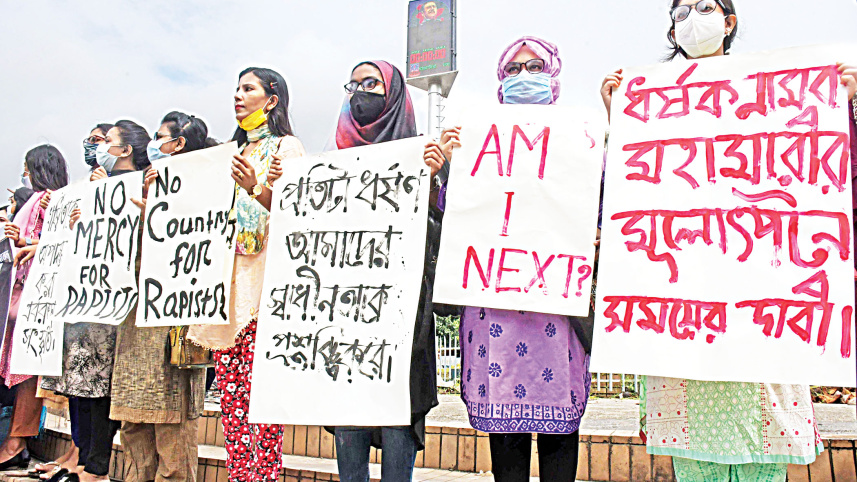 NO
MERCY
FOR
RAPISTS
No
Country
for
Rapists
প্রতিটা ধর্ষণ
আমাদের
স্বাধীনতাকে
প্রশ্নবিদ্ধ করে।
AM
I
NEXT?
ধর্ষক নামের
মহামারীর
মূলোৎপাটন
সময়ের দাবী।